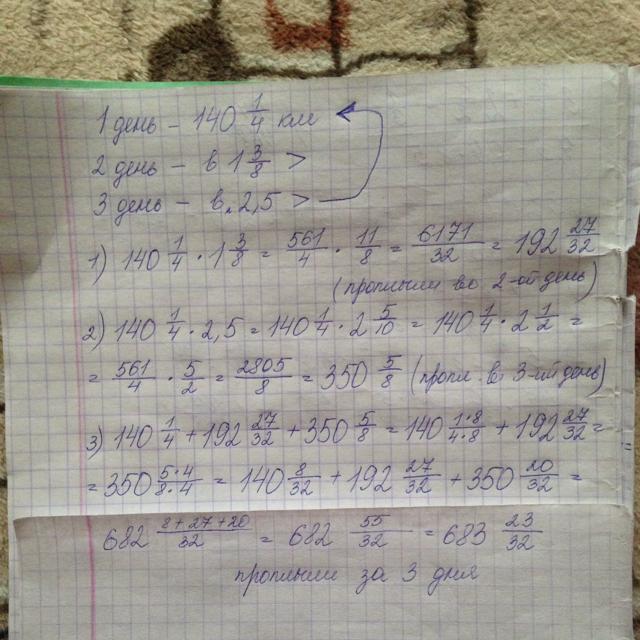 1 день – 140 1/4 км
2 день – в 1 3/8 >
3 день – в 2,5 >
1) 140 1/4 · 1 3/8 = 561/4 · 11/8 = 6171/32 = 192 27/32
(проплыли во 2-ой день)
2) 140 1/4 · 2,5 = 140 1/4 · 2 5/10 = 140 1/4 · 2 1/2 =
= 561/4 · 5/2 = 2805/8 = 350 5/8 (пропл. в 3-ий день)
3) 140 1/4 + 192 27/32 + 350 5/8 = 140 1·8/4·8 + 192 27/32 =
= 350 5·4/8·4 = 140 8/32 + 192 27/32 + 350 20/32 =
682 8+27+20/32 = 682 55/32 = 683 23/32
проплыли за 3 дня